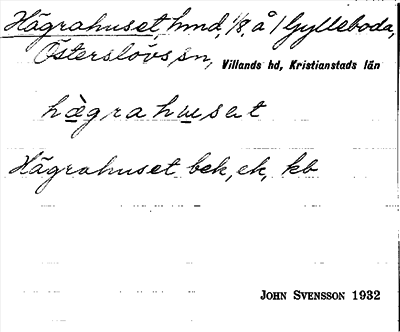 Hägrahuset, hmd, 1/8, å 1 Gylleboda,
Österslövs sn, Villands hd, Kristianstads län
hægrahusat
Hägrahuset bek, ek, kb
JOHN SVENSSON 1932